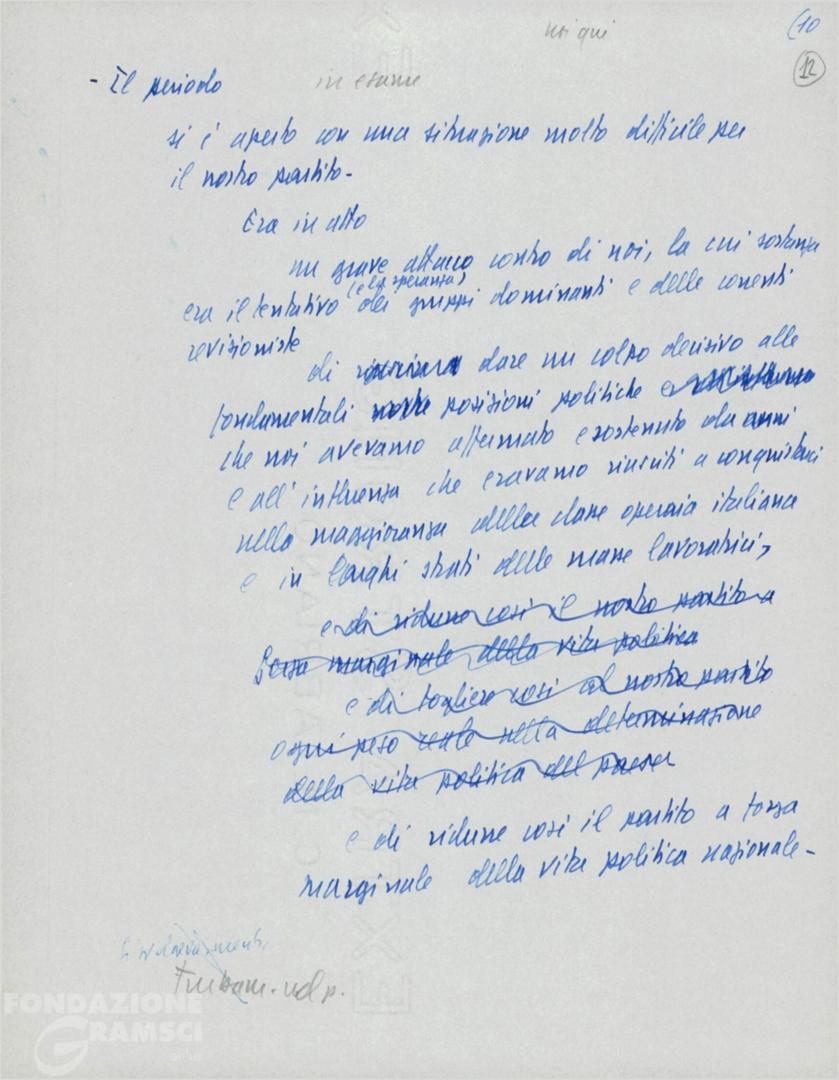 noi qui (10
12
- Il periodo in esame
si è aperto con una situazione molto difficile per
il nostro partito-
Era in atto
un grave attacco contro di noi, la cui sostanza
(e la speranza)
era il tentativo dei gruppi dominanti e delle correnti
revisioniste
di dare un colpo decisivo alle
fondamentali nostre posizioni politiche e
che noi avevamo affermato e sostenuto da anni
e all'influenza che eravamo riusciti a conquistarci
nella maggioranza della classe operaia italiana
e in larghi strati delle masse lavoratrici,
e di ridurre così il nostro partito a
forza marginale della vita politica
e di togliere così al nostro partito
ogni peso reale nella determinazione
della vita politica del paese
e di ridurre così il partito a forza
marginale della vita politica nazionale-
FONDAZIONE
GRAMSCI